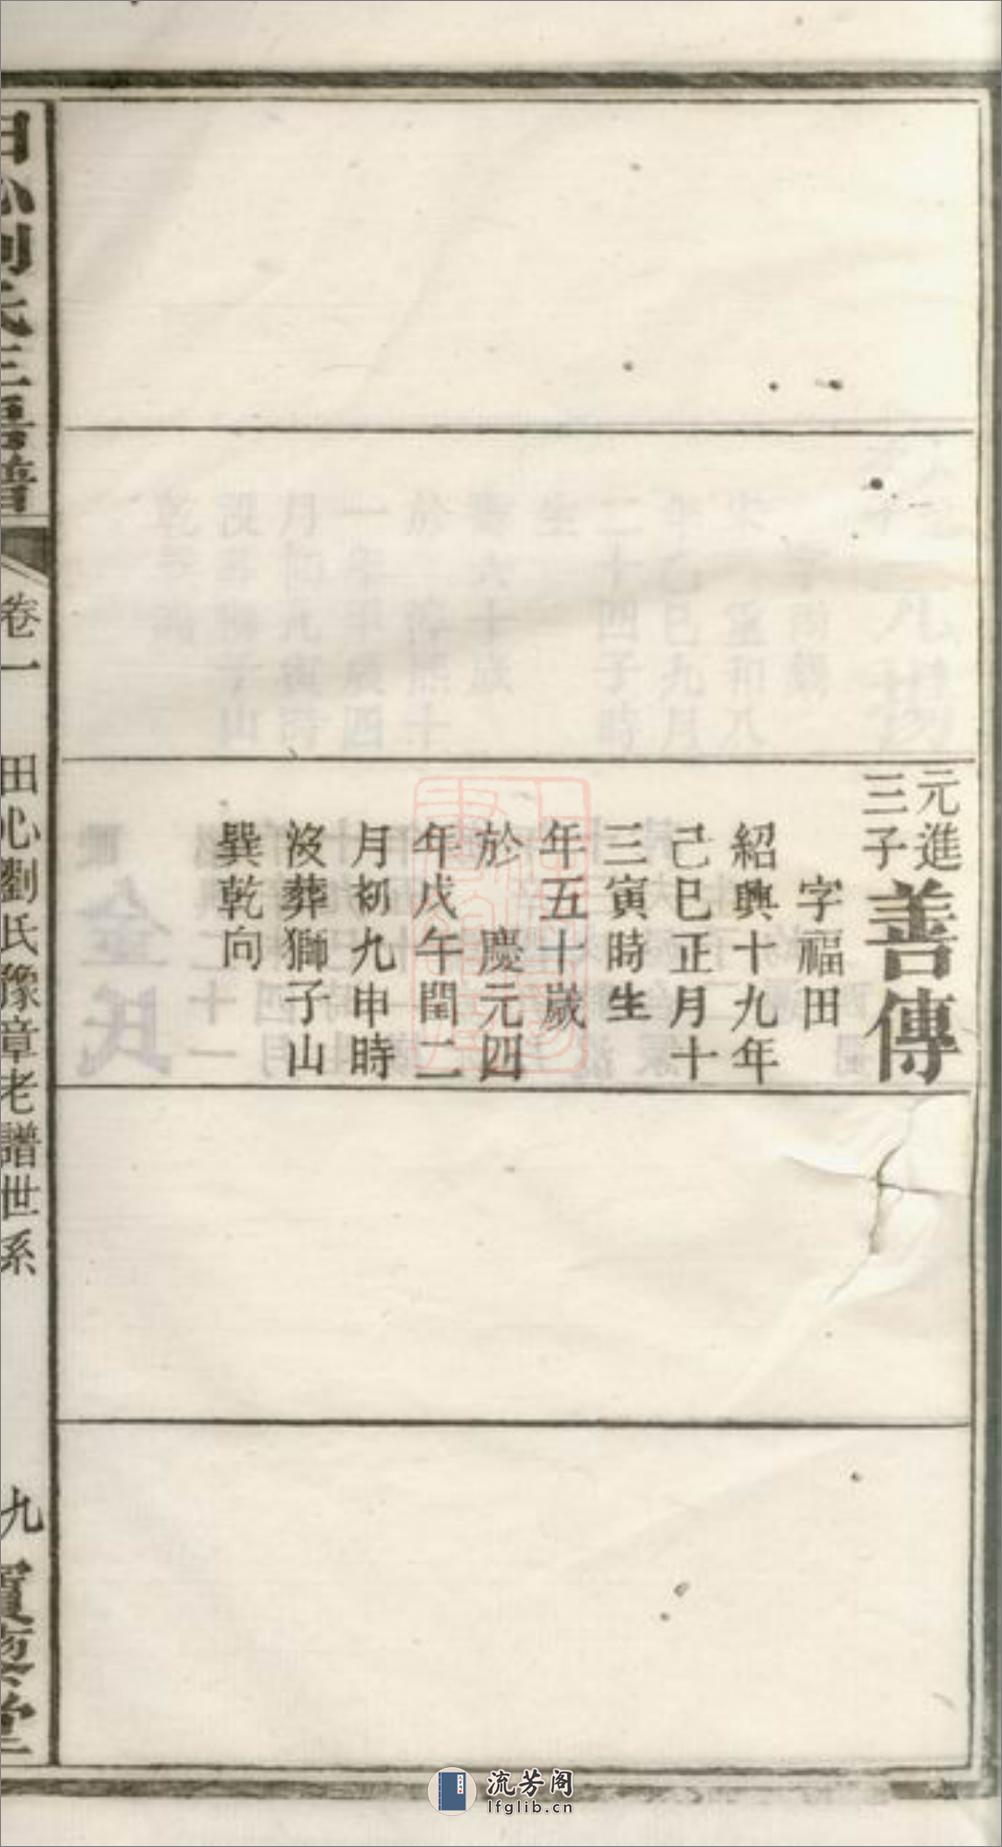 元進
三子
善傳
字福田
紹興十九年
己巳正月十
三寅時生
年五十歲
於 慶元四
年戊午閏二
月初九申時
沒葬獅子山
巽乾向
田心劉氏三修譜
卷一
田心劉氏豫章老譜世系
九
流芳阁
lfglib.cn